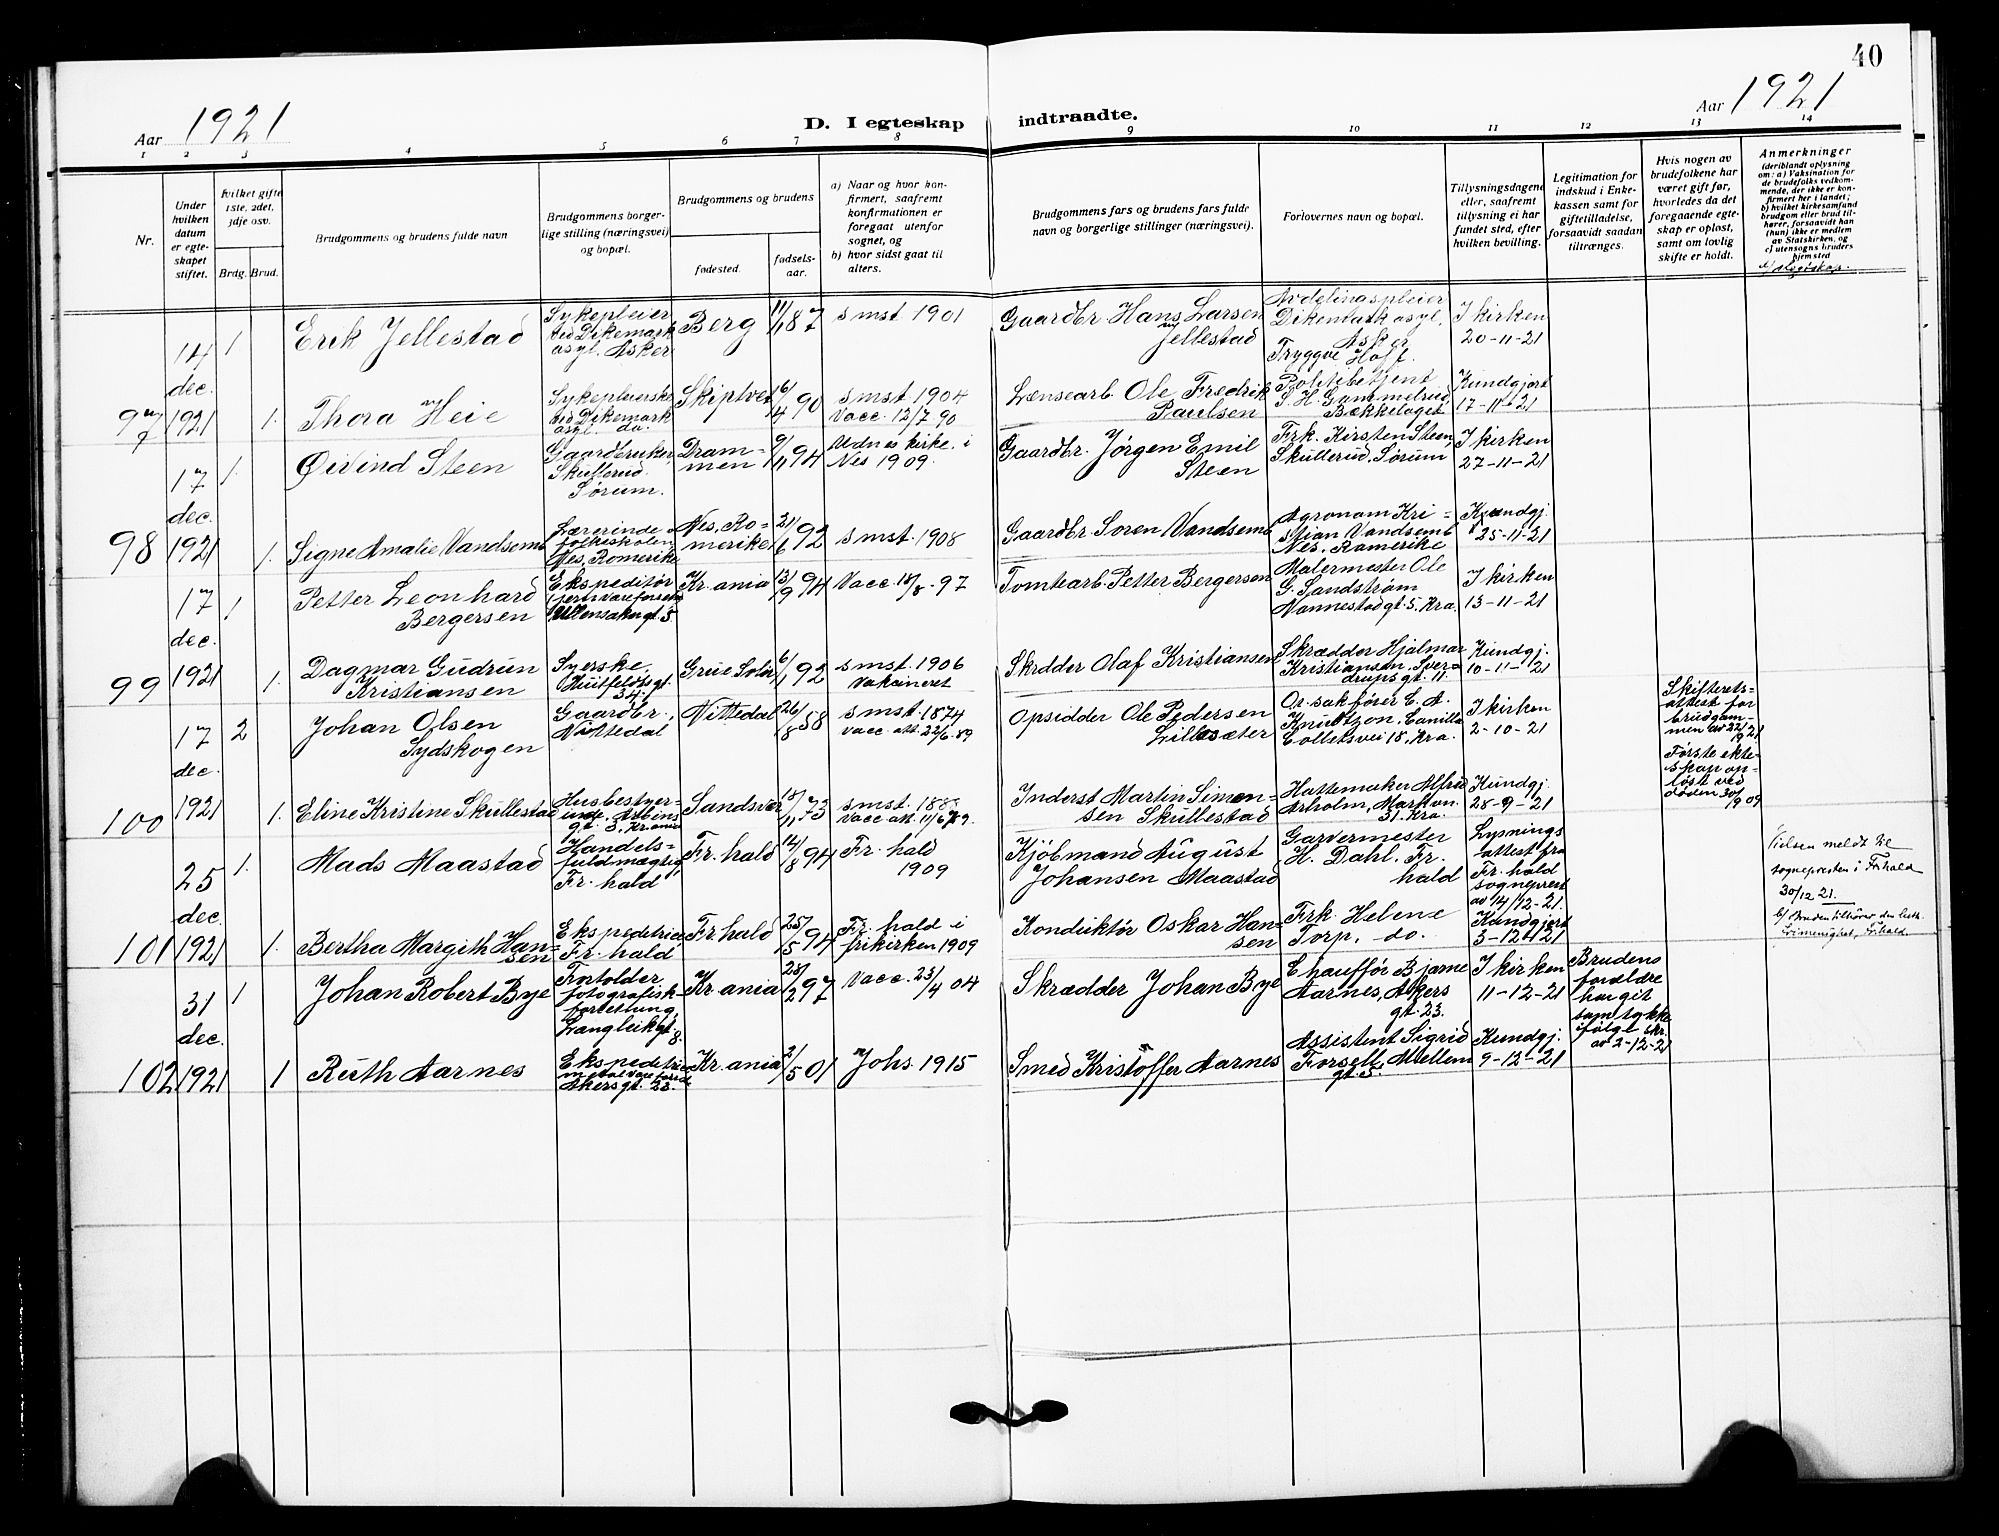 40
Aar 1921
D. I egteskap indtraadte.
Aar 1921
1 2 3 4 5 6 7 8 9 10 11 12 13 14
Nr.
Under
hvilken
datum
er egte-
skapet
stiftet.
hvilket gifte
1ste, 2det,
3dje osv.
Brdg. Brud.
Brudgommens og brudens fulde navn
Brudgommens borger-
lige stilling (næringsvei)
og bopæl.
Brudgommens og brudens
fødested.
fødsels-
aar.
a) Naar og hvor kon-
firmert, saafremt
konfirmationen er
foregaat utenfor
sognet, og
b) hvor sidst gaat til
alters.
Brudgommens fars og brudens fars fulde
navn og borgerlige stillinger (næringsvei).
Forlovernes navn og bopæl.
Tillysningsdagene
eller, saafremt
tillysning ei har
fundet sted, efter
hvilken bevilling.
Legitimation for
indskud i Enke-
kassen samt for
giftetilladelse,
forsaavidt saadan
tiltrænges.
Hvis nogen av
brudefolkene har
været gift før,
hvorledes da det
foregaaende egte-
skap er opløst,
samt om lovlig
skifte er holdt.
Anmerkninger
(deriblandt oplysning
om: a) Vaksination for
de brudefolks vedkom-
mende, der ikke er kon-
firmert her i landet;
b) hvilket kirkesamfund
brudgom eller brud til-
hører, forsaavidt han
(hun) ikke er medlem
av Statskirken, og
c) utensogns bruders
hjemsted
14
dec.
1921
97
1
Erik Jellestad
Sykepleier
ved Dikemark
asyl. Asker
Berg
11/11 87
smst 1901
Gaardbr Hans Larsen
Jellestad
Avdelingspleier
Dikemark asyl,
Asker
Tryggve Hoff.
I kirken
20-11-21
1.
Thora Heie
Sykepleierske
ved Dikemark
asyl. do.
Skiptvet
16/4 90
smst 1904
Vacc. 12/7 90
Lænsearb. Ole Fredrik
Paulsen
Politibetjent
S. H. Gammelrud,
Bækkelaget
Kundgjort
17-11-21
17
dec.
1921
98
1.
Øivind Steen
Gaardbruker,
Skullerud.
Sørum.
Dram-
men
9/11 94
Udnes kirke i
Nes 1909.
Gaardbr. Jørgen Emil
Steen
Frk. Kirsten Steen,
Skullerud, Sørum
I kirken
27-11-21
1.
Signe Amalie Vandsemb
Lærerinde
folkeskolen
Nes, Romerike
Nes, Ro-
merike
21/6 92
smst. 1908
Gaardbr Søren Vandsemb
Agronom Kri-
stian Vandsemb
Nes. Romerike
Kundgj.
25-11-21
17
dec.
1921
99
1
Petter Leonhard
Bergersen
Ekspeditør
Ullensakergt. 5
Kr.ania
13/9 94
Vacc. 18/8-97
Tomtearb. Petter Bergersen
Malermester Ole
G. Sandstrøm
Nannestadgt. 5. Kra.
I kirken
13-11-21
1.
Dagmar Gudrun
Kristiansen
Syerske,
Huitfeldtsgt.
34.
Grue Solør
6/11 92
smst. 1906
Vakcineret
Skrædder Olaf Kristiansen
Skrædder Hjalmar
Kristiansen, Sver-
drupsgt. 11.
Kundgj.
10-11-21
17
dec.
1921
100
2
Johan Olsen
Sydskogen
Gaardbr.,
Nittedal
Nittedal
26/8 58
smst. 1874
Vacc. att. 22/6-89
Opsidder Ole Pedersen
Lillesæter
O.r.sakfører C. A.
Knudtzon, Camilla
Colletsvei 18, Kra.
I kirken
2-10-21
Skifterets-
attest for
brudgom-
men av 22/9
1921
Første ekte-
skap op-
løst ved
døden 30/1
1909
1.
Eline Kristine Skullestad
Husbestyrer-
inde, Arbins
gt. 3, Kr.ania
Sandsvær
18/11 73
smst. 188
Vacc. att. 11/6 79.
Inderst Martin Simen-
sen Skullestad
Hattemaker Alfred
Arholm, Markvn.
31. Kra.
Kundgj.
28-9-21
25
dec.
1921
101
1.
Mads Maastad
Handels-
fuldmægtig,
Fr. hald
Fr. hald
14/8 94
Fr. hald
1909
Kjøbmand August
Johansen Maastad
Garvermester
H. Dahl. Fr.
hald
Lysnings
attest fra
Fr. hald
sogneprest
av 14/12-21.
Vielsen meldt til
sognepresten i Frhald
30/12 21.
1.
Bertha Margith Han-
sen
Ekspeditrice
Fr. hald
Fr. hald
25/5 94
Fr. hald i
frikirken 1909
Konduktør Oskar Han-
sen
Frk. Helene
Torp, do.
Kundgjort
3-12-21
b) Bruden tilhører den luth.
frimenighet, Frhald
31
dec.
1921
102
1
Johan Robert Bye
Forfolder
fotografisk
forretning,
Langleikgt.
8.
Kr.ania
23/2 97
Vacc. 23/4 04
Skrædder Johan Bye
Chauffør Bjarne
Aarnes, Akers
gt. 23.
I kirken
11-12-21
Brudens
forældre
har git
samtykke
ifølge skr.
av 2-12-21
1
Ruth Aarnes
Ekspeditrice
Akersgt. 23.
Kr.ania
2/5 01
Johs. 1915
Smed Kristoffer Aarnes
Assistent Sigrid
Forsell, Mellem
gt. 5.
Kundgj.
9-12-21